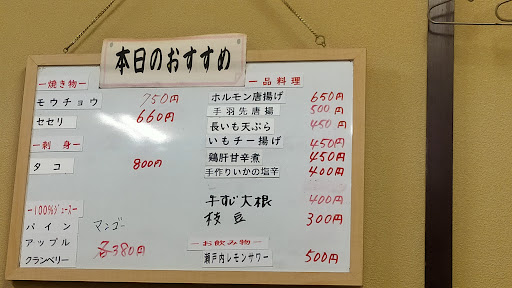 本日のおすすめ
ー焼き物ー
モウチョウ 750円
セセリ 660円
ー刺 身ー
タコ 800円
ー100%ジュースー
パイン マンゴー
アップル 各380円
クランベリー
一品料理
ホルモン唐揚げ 650円
手羽先唐揚 500円
長いも天ぷら 450円
いもチー揚げ 450円
鶏肝甘辛煮 450円
手作りいかの塩辛 400円
牛すじ大根 400円
枝豆 300円
ーお飲み物ー
瀬戸内レモンサワー 500円